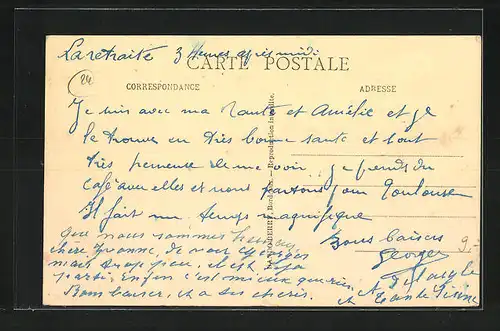 La retraite 3 heures après midi
CARTE POSTALE
24
CORRESPONDANCE
ADRESSE
Je suis avec ma tante et Amélie et je
le trouve en très bonne santé et tout
très heureuse de me voir. je prends du
café avec elles et nous partons pour Toulouse
Il fait un temps magnifique
Bons baisers
Georges
que nous sommes heureux
chère Yvonne de voir Georges
mais trop peu, il est déjà
parti. Enfin c'est mieux que rien.
Bons baisers, et a ses chéris.
9-
Tante
Bordeaux. — Reproduction interdite.